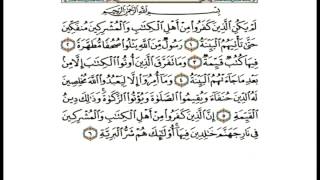 بِسْمِ ٱللَّهِ ٱلرَّحْمَٰنِ ٱلرَّحِيمِ
لَمْ يَكُنِ ٱلَّذِينَ كَفَرُوا۟ مِنْ أَهْلِ ٱلْكِتَٰبِ وَٱلْمُشْرِكِينَ مُنفَكِّينَ
حَتَّىٰ تَأْتِيَهُمُ ٱلْبَيِّنَةُ ١ رَسُولٌ مِّنَ ٱللَّهِ يَتْلُوا۟ صُحُفًا مُّطَهَّرَةً ٢
فِيهَا كُتُبٌ قَيِّمَةٌ ٣ وَمَا تَفَرَّقَ ٱلَّذِينَ أُوتُوا۟ ٱلْكِتَٰبَ إِلَّا مِنۢ
بَعْدِ مَا جَآءَتْهُمُ ٱلْبَيِّنَةُ ٤ وَمَآ أُمِرُوٓا۟ إِلَّا لِيَعْبُدُوا۟ ٱللَّهَ مُخْلِصِينَ
لَهُ ٱلدِّينَ حُنَفَآءَ وَيُقِيمُوا۟ ٱلصَّلَوٰةَ وَيُؤْتُوا۟ ٱلزَّكَوٰةَ وَذَٰلِكَ دِينُ
ٱلْقَيِّمَةِ ٥ إِنَّ ٱلَّذِينَ كَفَرُوا۟ مِنْ أَهْلِ ٱلْكِتَٰبِ وَٱلْمُشْرِكِينَ
فِى نَارِ جَهَنَّمَ خَٰلِدِينَ فِيهَآ أُو۟لَٰٓئِكَ هُمْ شَرُّ ٱلْبَرِيَّةِ ٦